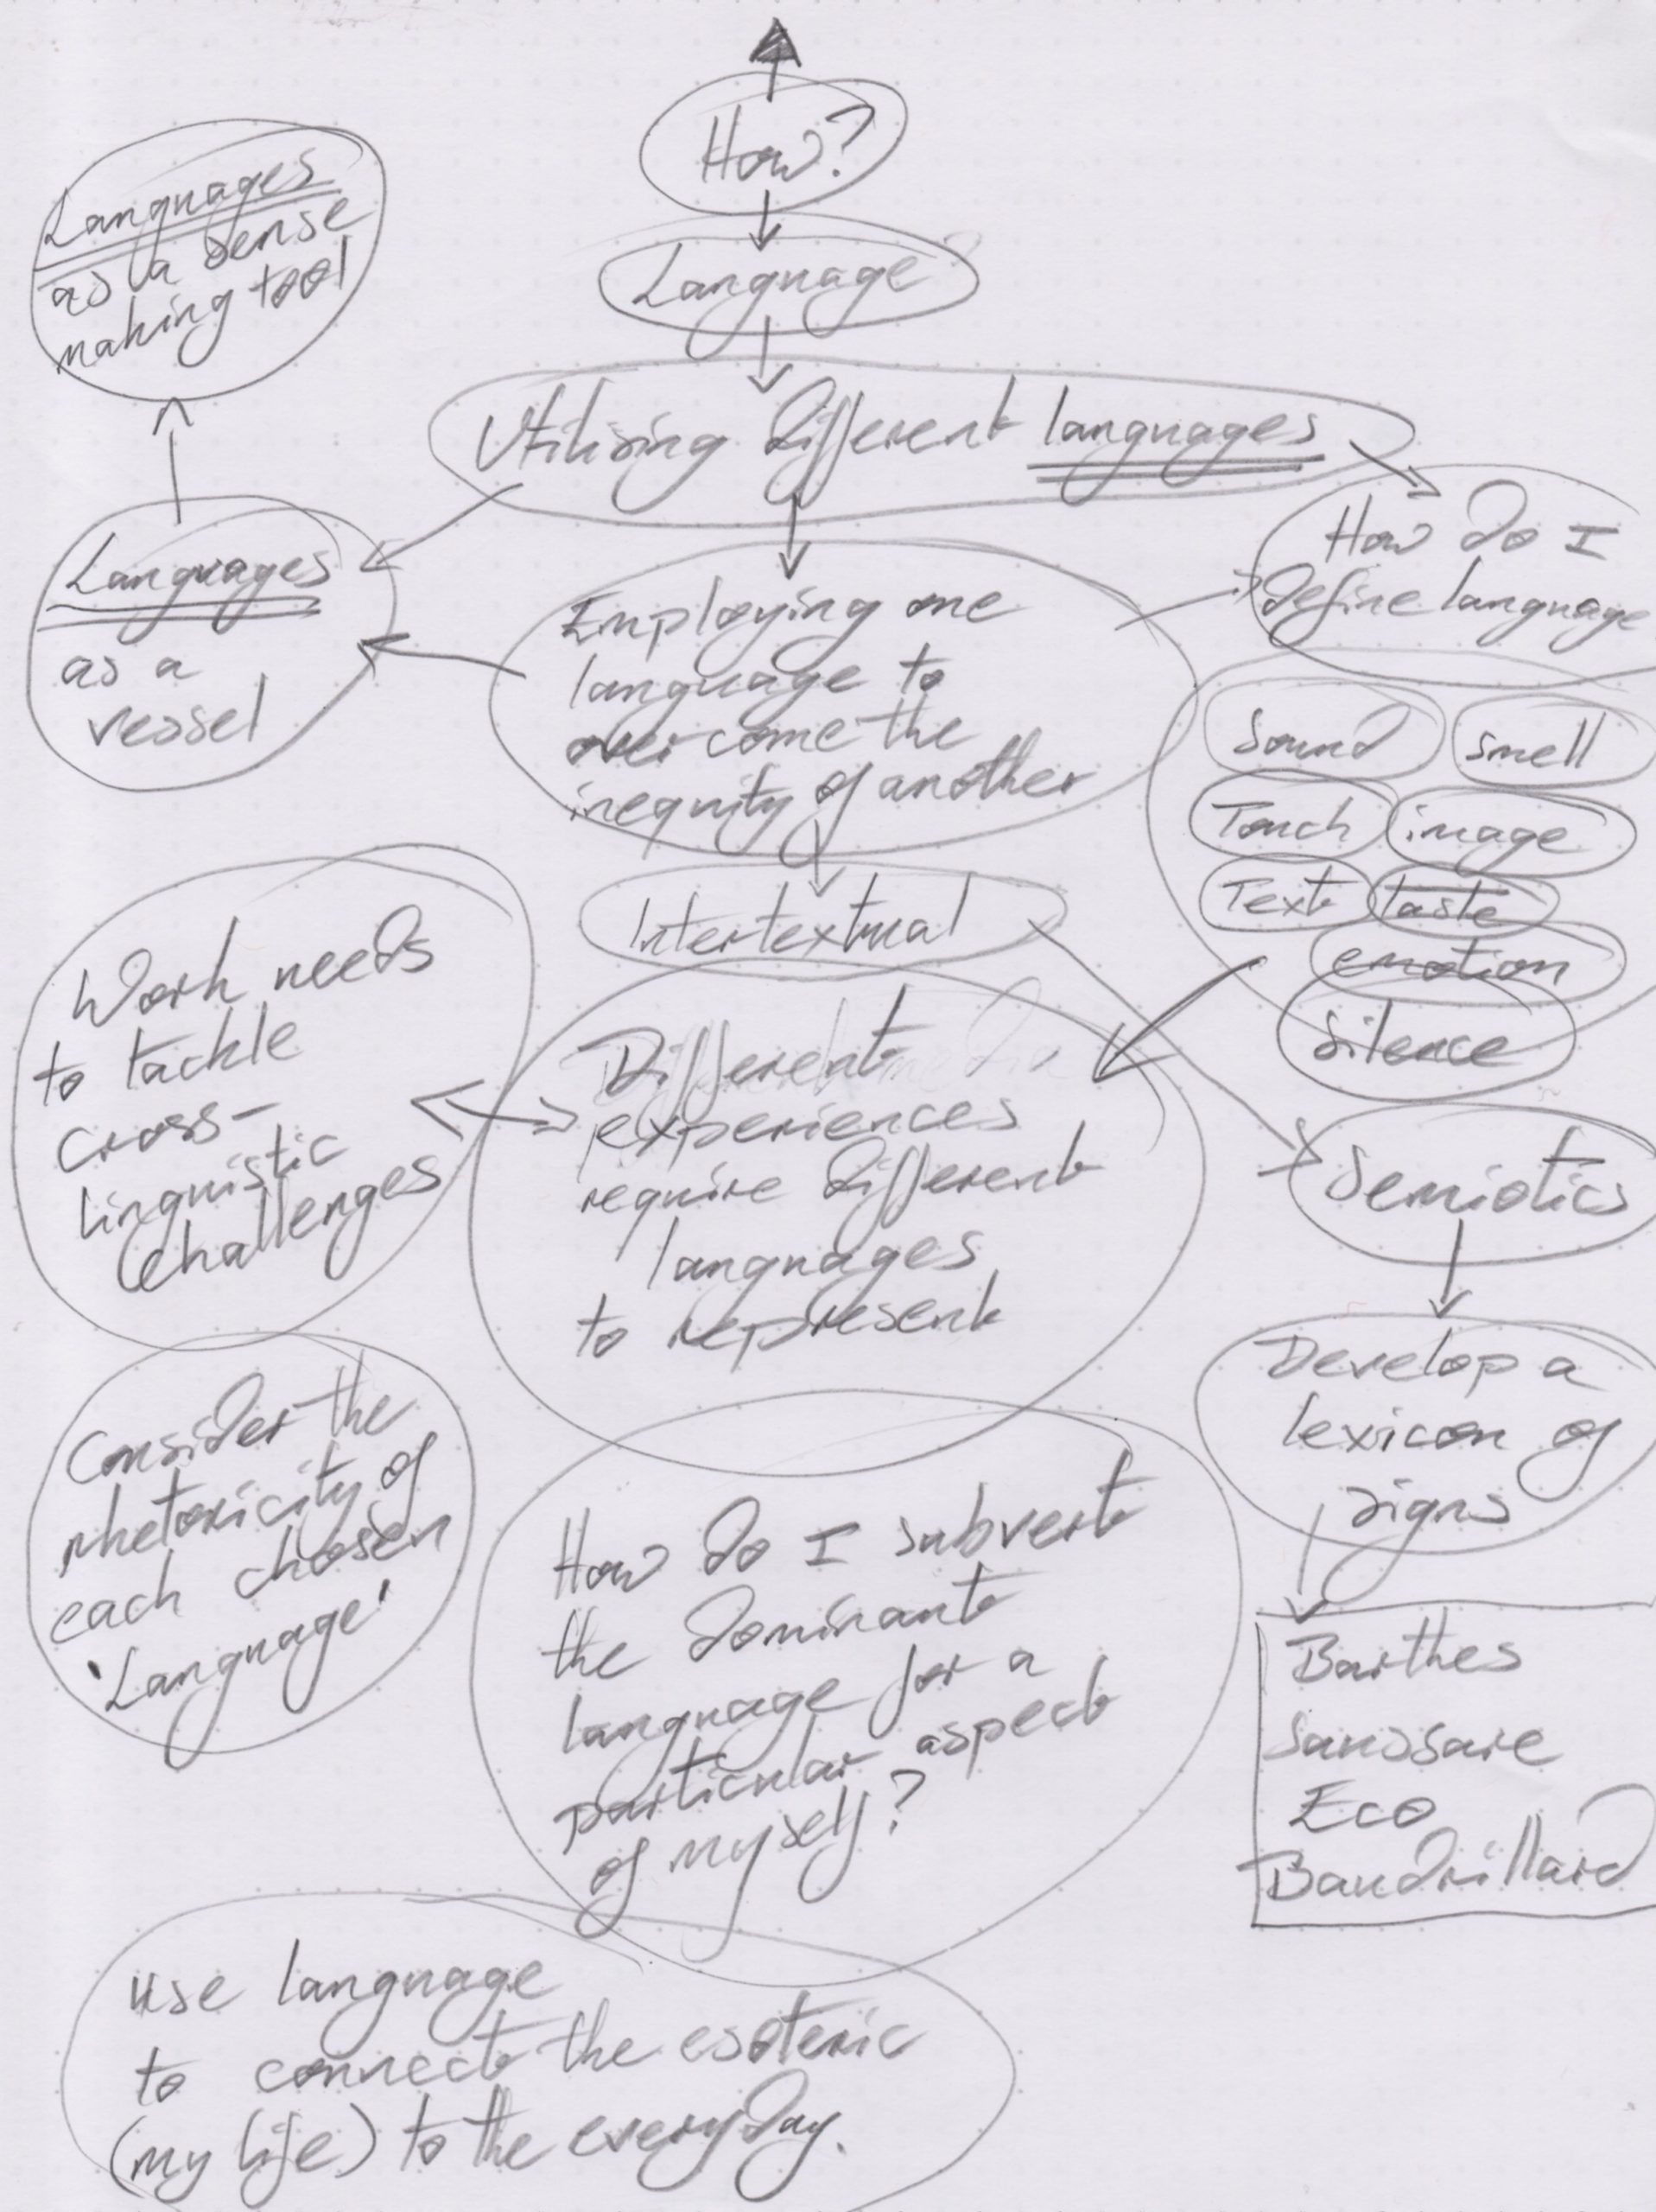 How?
Language?
Languages
as a sense
making tool
Utilising different languages
Languages
as a
vessel
Employing one
language to
overcome the
inequity of another
How do I
define language
Sound
smell
Touch
image
Text
taste
emotion
Silence
Intertextual
Work needs
to tackle
cross-
linguistic
challenges
Different
experiences
require different
languages
to represent
Semiotics
Develop a
lexicon of
signs
Barthes
Saussare
Eco
Baudrillard
Consider the
rhetoricity of
each chosen
'Language'
How do I subvert
the dominant
language for a
particular aspect
of myself?
use language
to connect the esoteric
(my life) to the everyday.